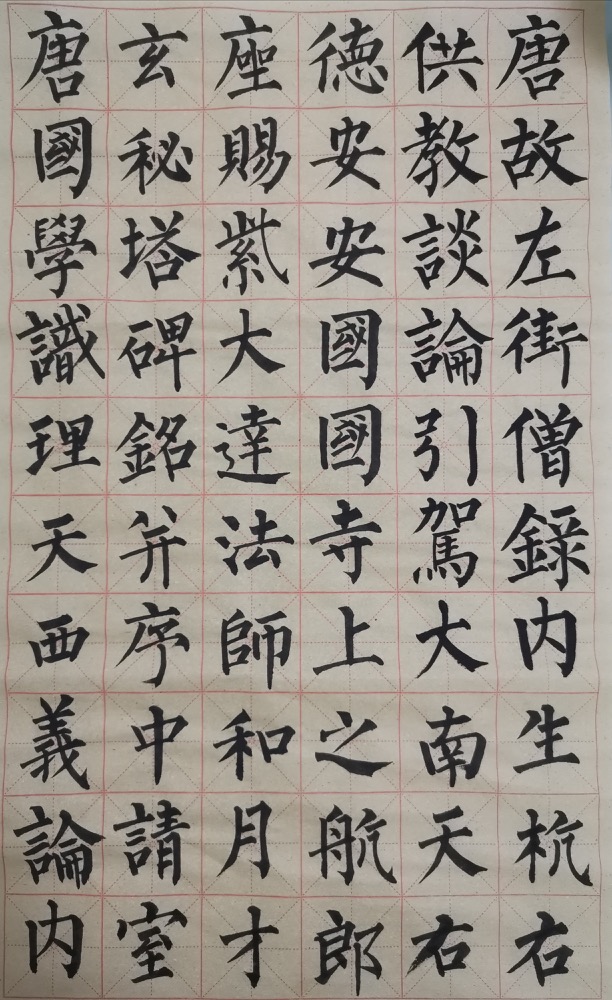 唐故左街僧錄内生杭右
供教談論引駕大南天右
德安安國國寺上之航郎
座賜紫大達法師和月才
玄秘塔碑銘并序中請室
唐國學識理天西義論内